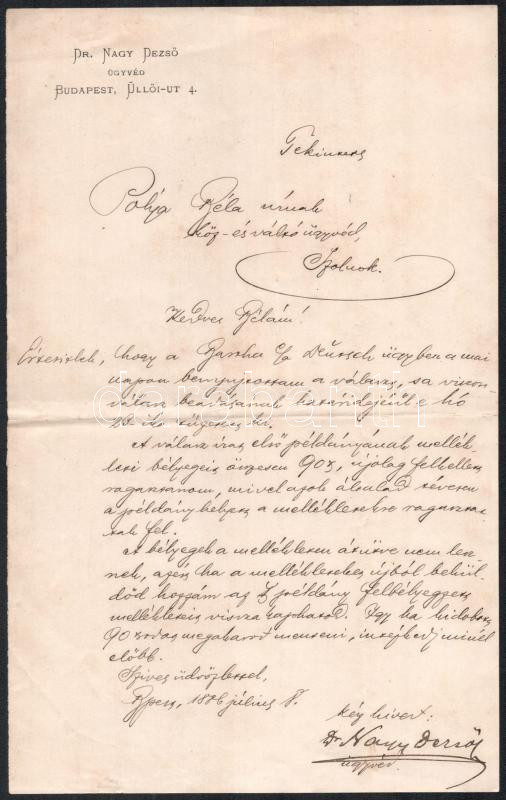 DR. NAGY DEZSŐ
ÜGYVÉD
BUDAPEST, ÜLLŐI-UT 4.
Tekintetes
Pólya Béla úrnak
köz- és váltó ügyvéd,
Szolnok.
Kedves Bélám!
Értesitlek, hogy a c/a Deutsch ügyben a mai
napon benyujtottam a választ, s a viszon
válasz beadásának határidejéül e hó
tüzetett ki.
A válasz irat első példányának mellék-
leti bélyegeit összesen 90x, ujolag fel kellett
ragasztanom, mivel azok általad tévesen
a példány helyett a mellékletekre ragasztat-
tak fel.
A bélyegek a mellékleten átütve nem lesz-
nek, azért ha a mellékleteket újból bekül-
död hozzám az I példány felbélyegzett
mellékleteit vissza kaphatod. Igy ha kidobott
90 x megakarod menteni, intézkedj minél
előbb.
Szives üdvözlettel,
Bpest, 1886 július 8.
kész hived:
Dr Nagy Dezső
ügyvéd.
darabanth